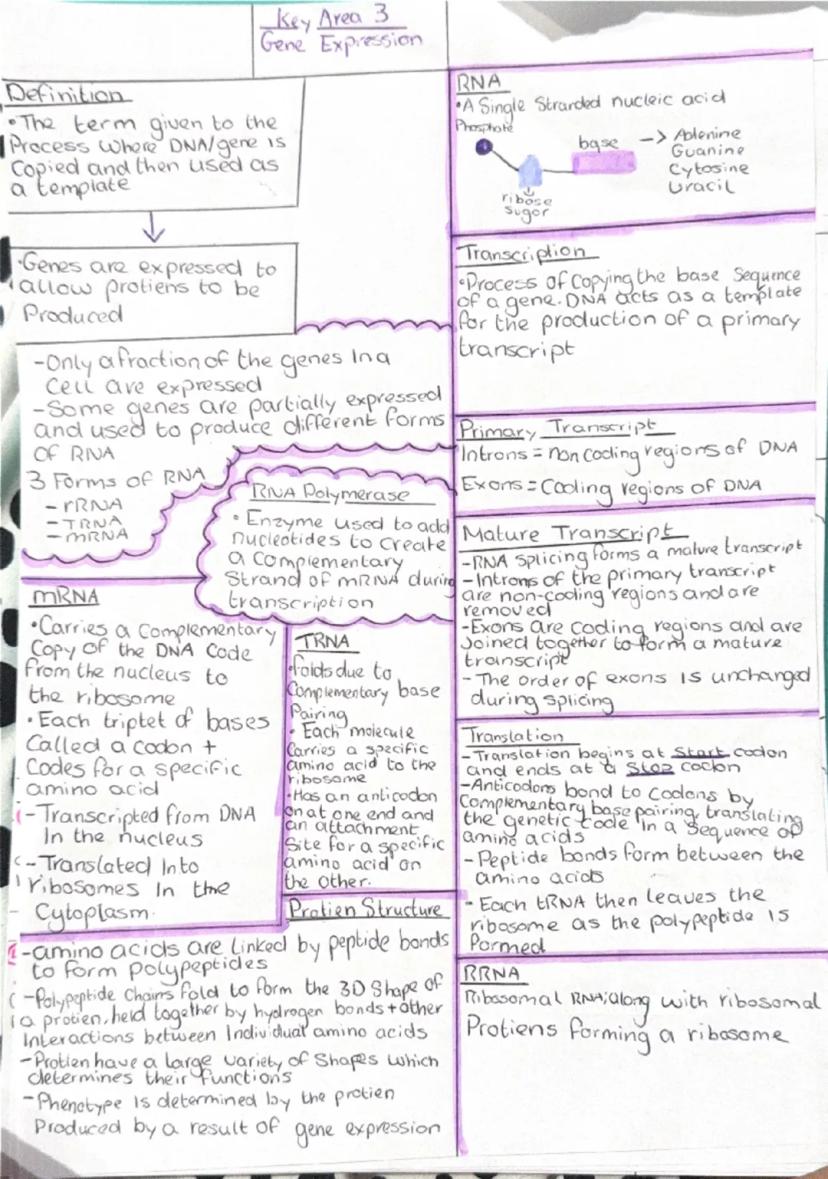 Key Area 3
Gene Expression
Definition
•The term given to the
Process where DNA/gene is
Copied and then used as
a template
•Genes are expressed to
allow protiens to be
Produced
-Only a fraction of the genes in a
Cell are expressed
-Some genes are partially expressed
and used to produce different forms
of RNA
3 Forms of RNA
- rRNA
- TRNA
- mRNA
RNA Polymerase
• Enzyme used to add
nucleotides to create
a complementary
Strand of mRNA during
transcription
mRNA
•Carries a Complementary
Copy of the DNA Code
from the nucleus to
the ribosome
• Each triplet of bases
Called a codon +
Codes for a specific
amino acid
- Transcripted from DNA
In the nucleus
- Translated Into
ribosomes In the
Cytoplasm.
TRNA
•folds due to
Complementary base
Pairing
• Each molecule
Carries a specific
amino acid to the
ribosome
•Has an anticodon
on at one end and
an attachment
Site for a specific
amino acid on
the other.
Protien Structure
-amino acids are linked by peptide bonds
to form polypeptides
-Polypeptide Chains fold to form the 3D Shape of
a protien, held together by hydrogen bonds + other
Interactions between Individual amino acids
-Protien have a large variety of Shapes which
determines their functions
-Phenotype is determined by the protien
Produced by a result of gene expression
RNA
•A Single Stranded nucleic acid
Phosphate
base
ribose
sugar
-> Adenine
Guanine
Cytosine
Uracil
Transcription
•Process of Copying the base Sequence
of a gene. DNA acts as a template
for the production of a primary
transcript
Primary Transcript
Introns = non coding regions of DNA
Exons = Coding regions of DNA
Mature Transcript
-RNA splicing forms a mature transcript
-Introns of the primary transcript
are non-coding regions and are
removed
-Exons are coding regions and are
Joined together to form a mature
transcript
- The order of exons is unchanged
during splicing
Translation
-Translation begins at Start codon
and ends at a Stop codon
-Anticodons bond to Codons by
Complementary base pairing, translating
the genetic code In a Sequence of
amino acids
-Peptide bonds form between the
amino acids
- Each tRNA then leaves the
ribosome as the polypeptide is
formed
RRNA
Ribosomal RNA, along with ribosomal
Protiens forming a ribosome